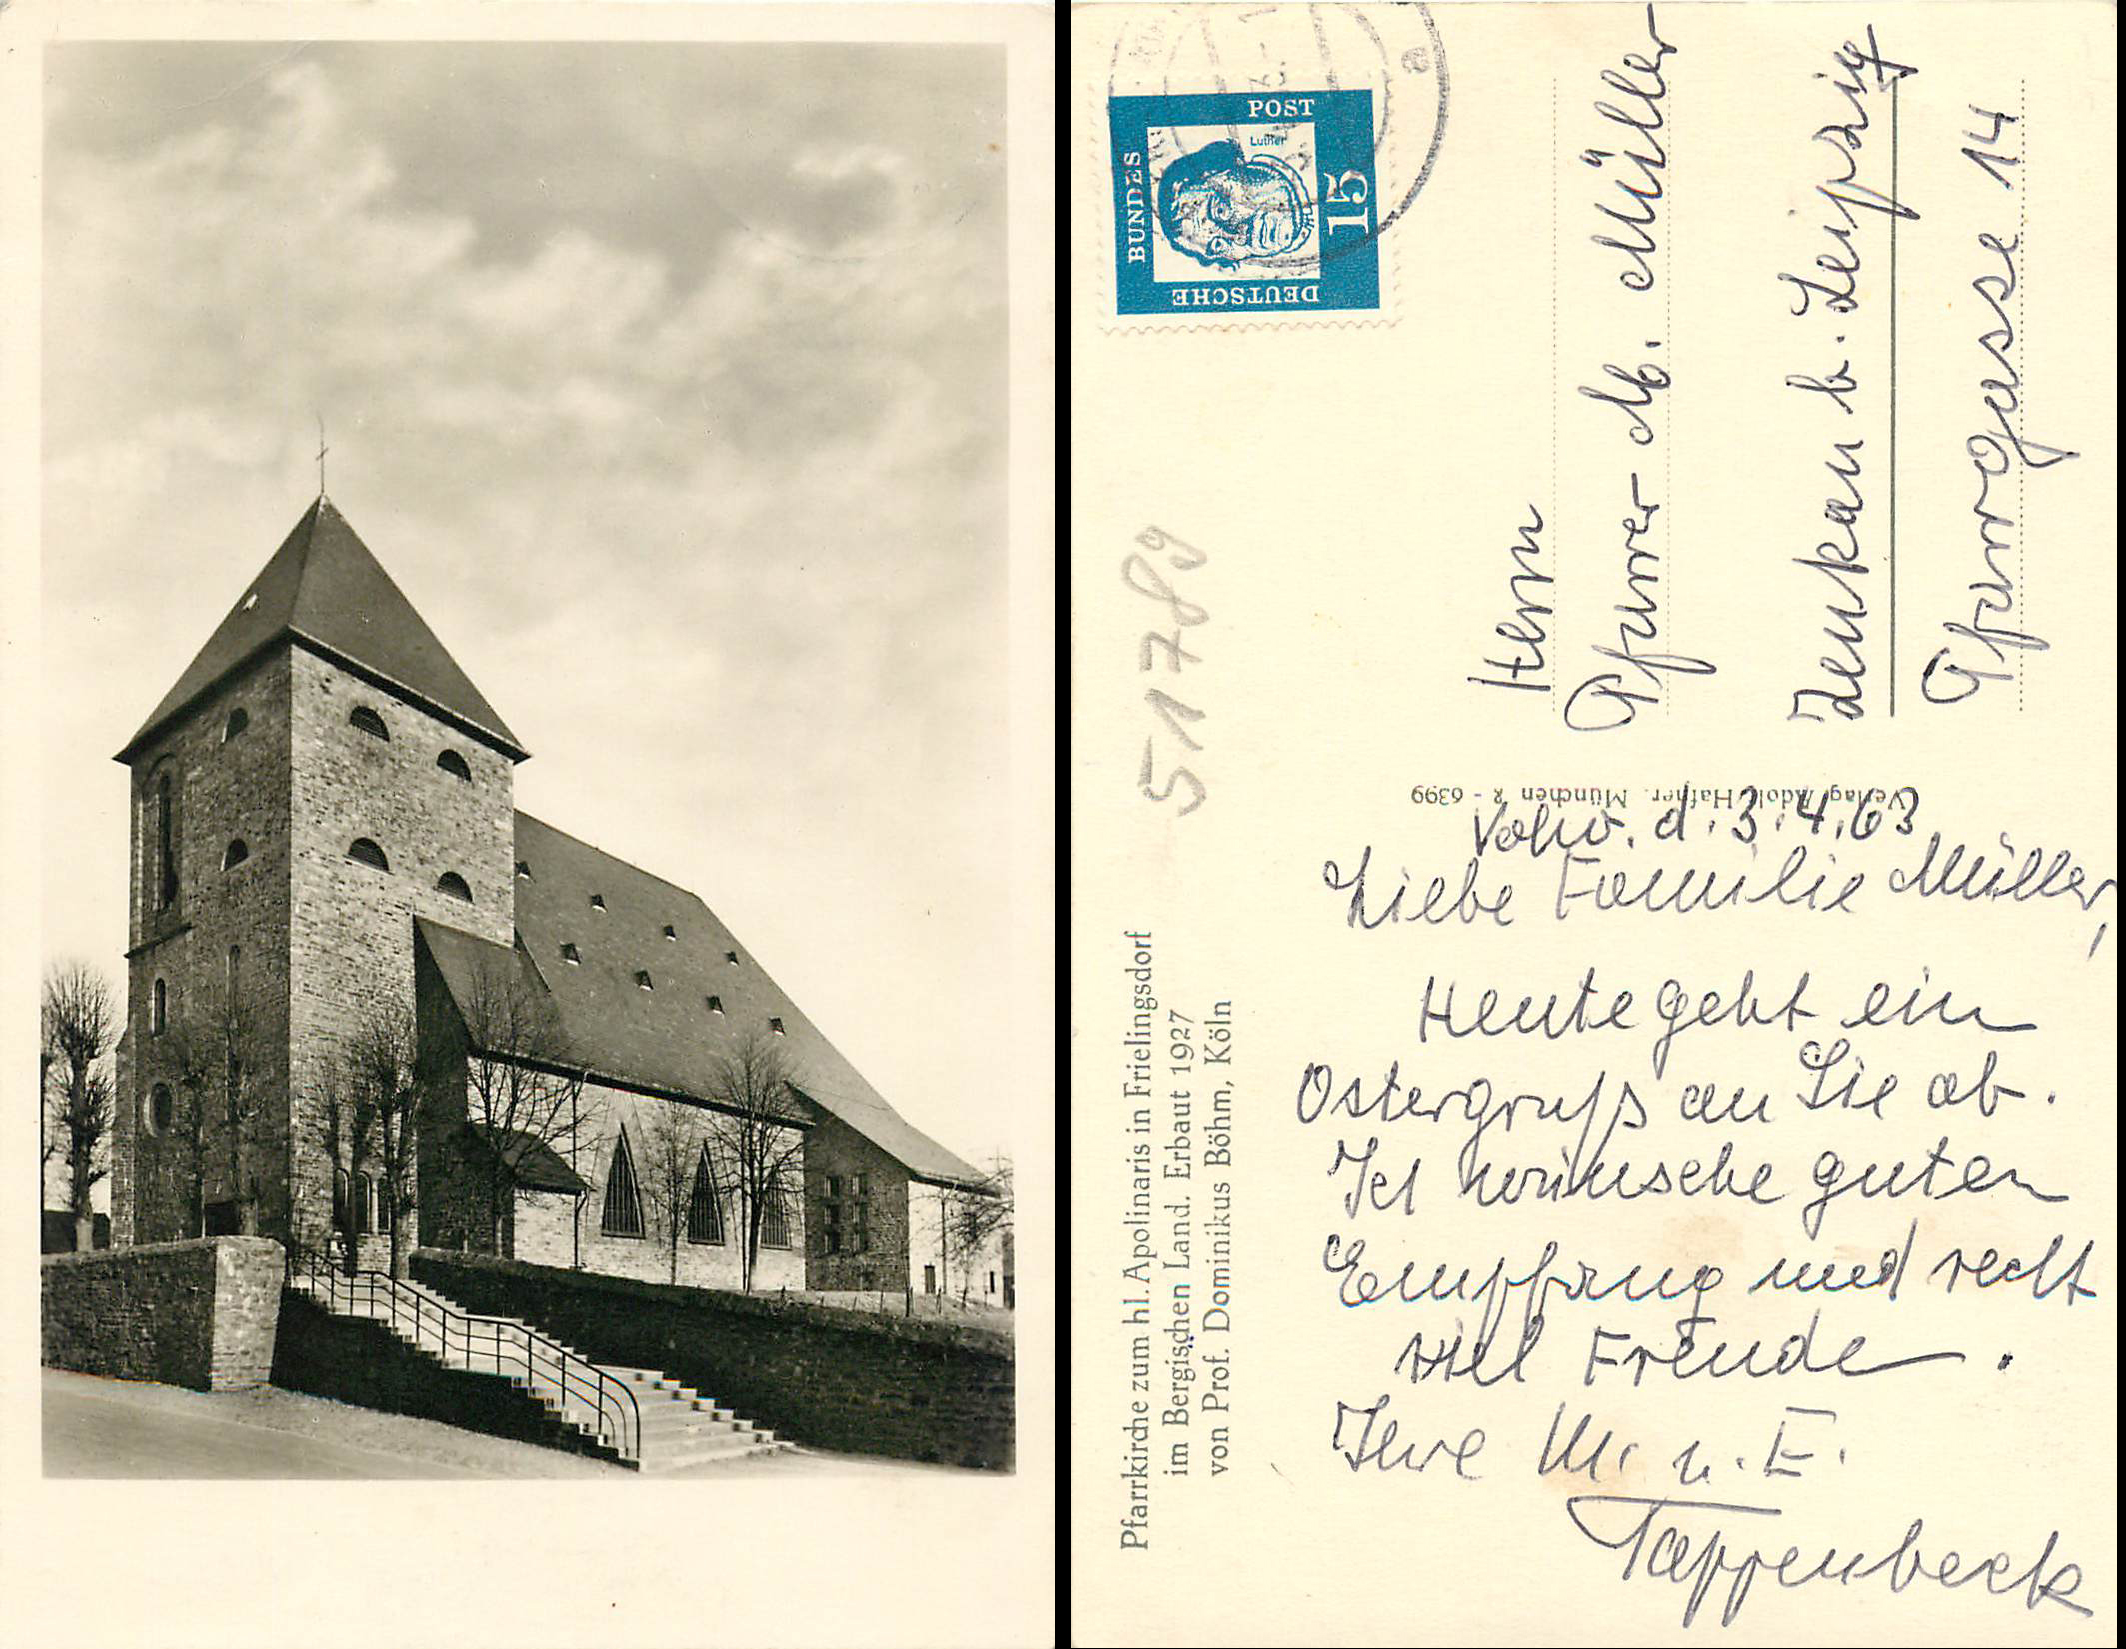 Pfarrkirche zum hl. Apolinaris in Frielingsdorf
im Bergischen Land. Erbaut 1927
von Prof. Dominikus Böhm, Köln
517 89
DEUTSCHE
BUNDES
POST
Luther
15
Herrn
Pfarrer M. Müller
Zeukau b. Leipzig
Pfarrgasse 14
Verlag Adolf Hafner, München 2 - 6399
d. 3.4.63
Liebe Familie Müller,
Heute geht ein
Ostergruß an Sie ab.
Ich wünsche guten
Empfang und recht
viel Freude.
Ihre M. u. E.
Tappenbeck